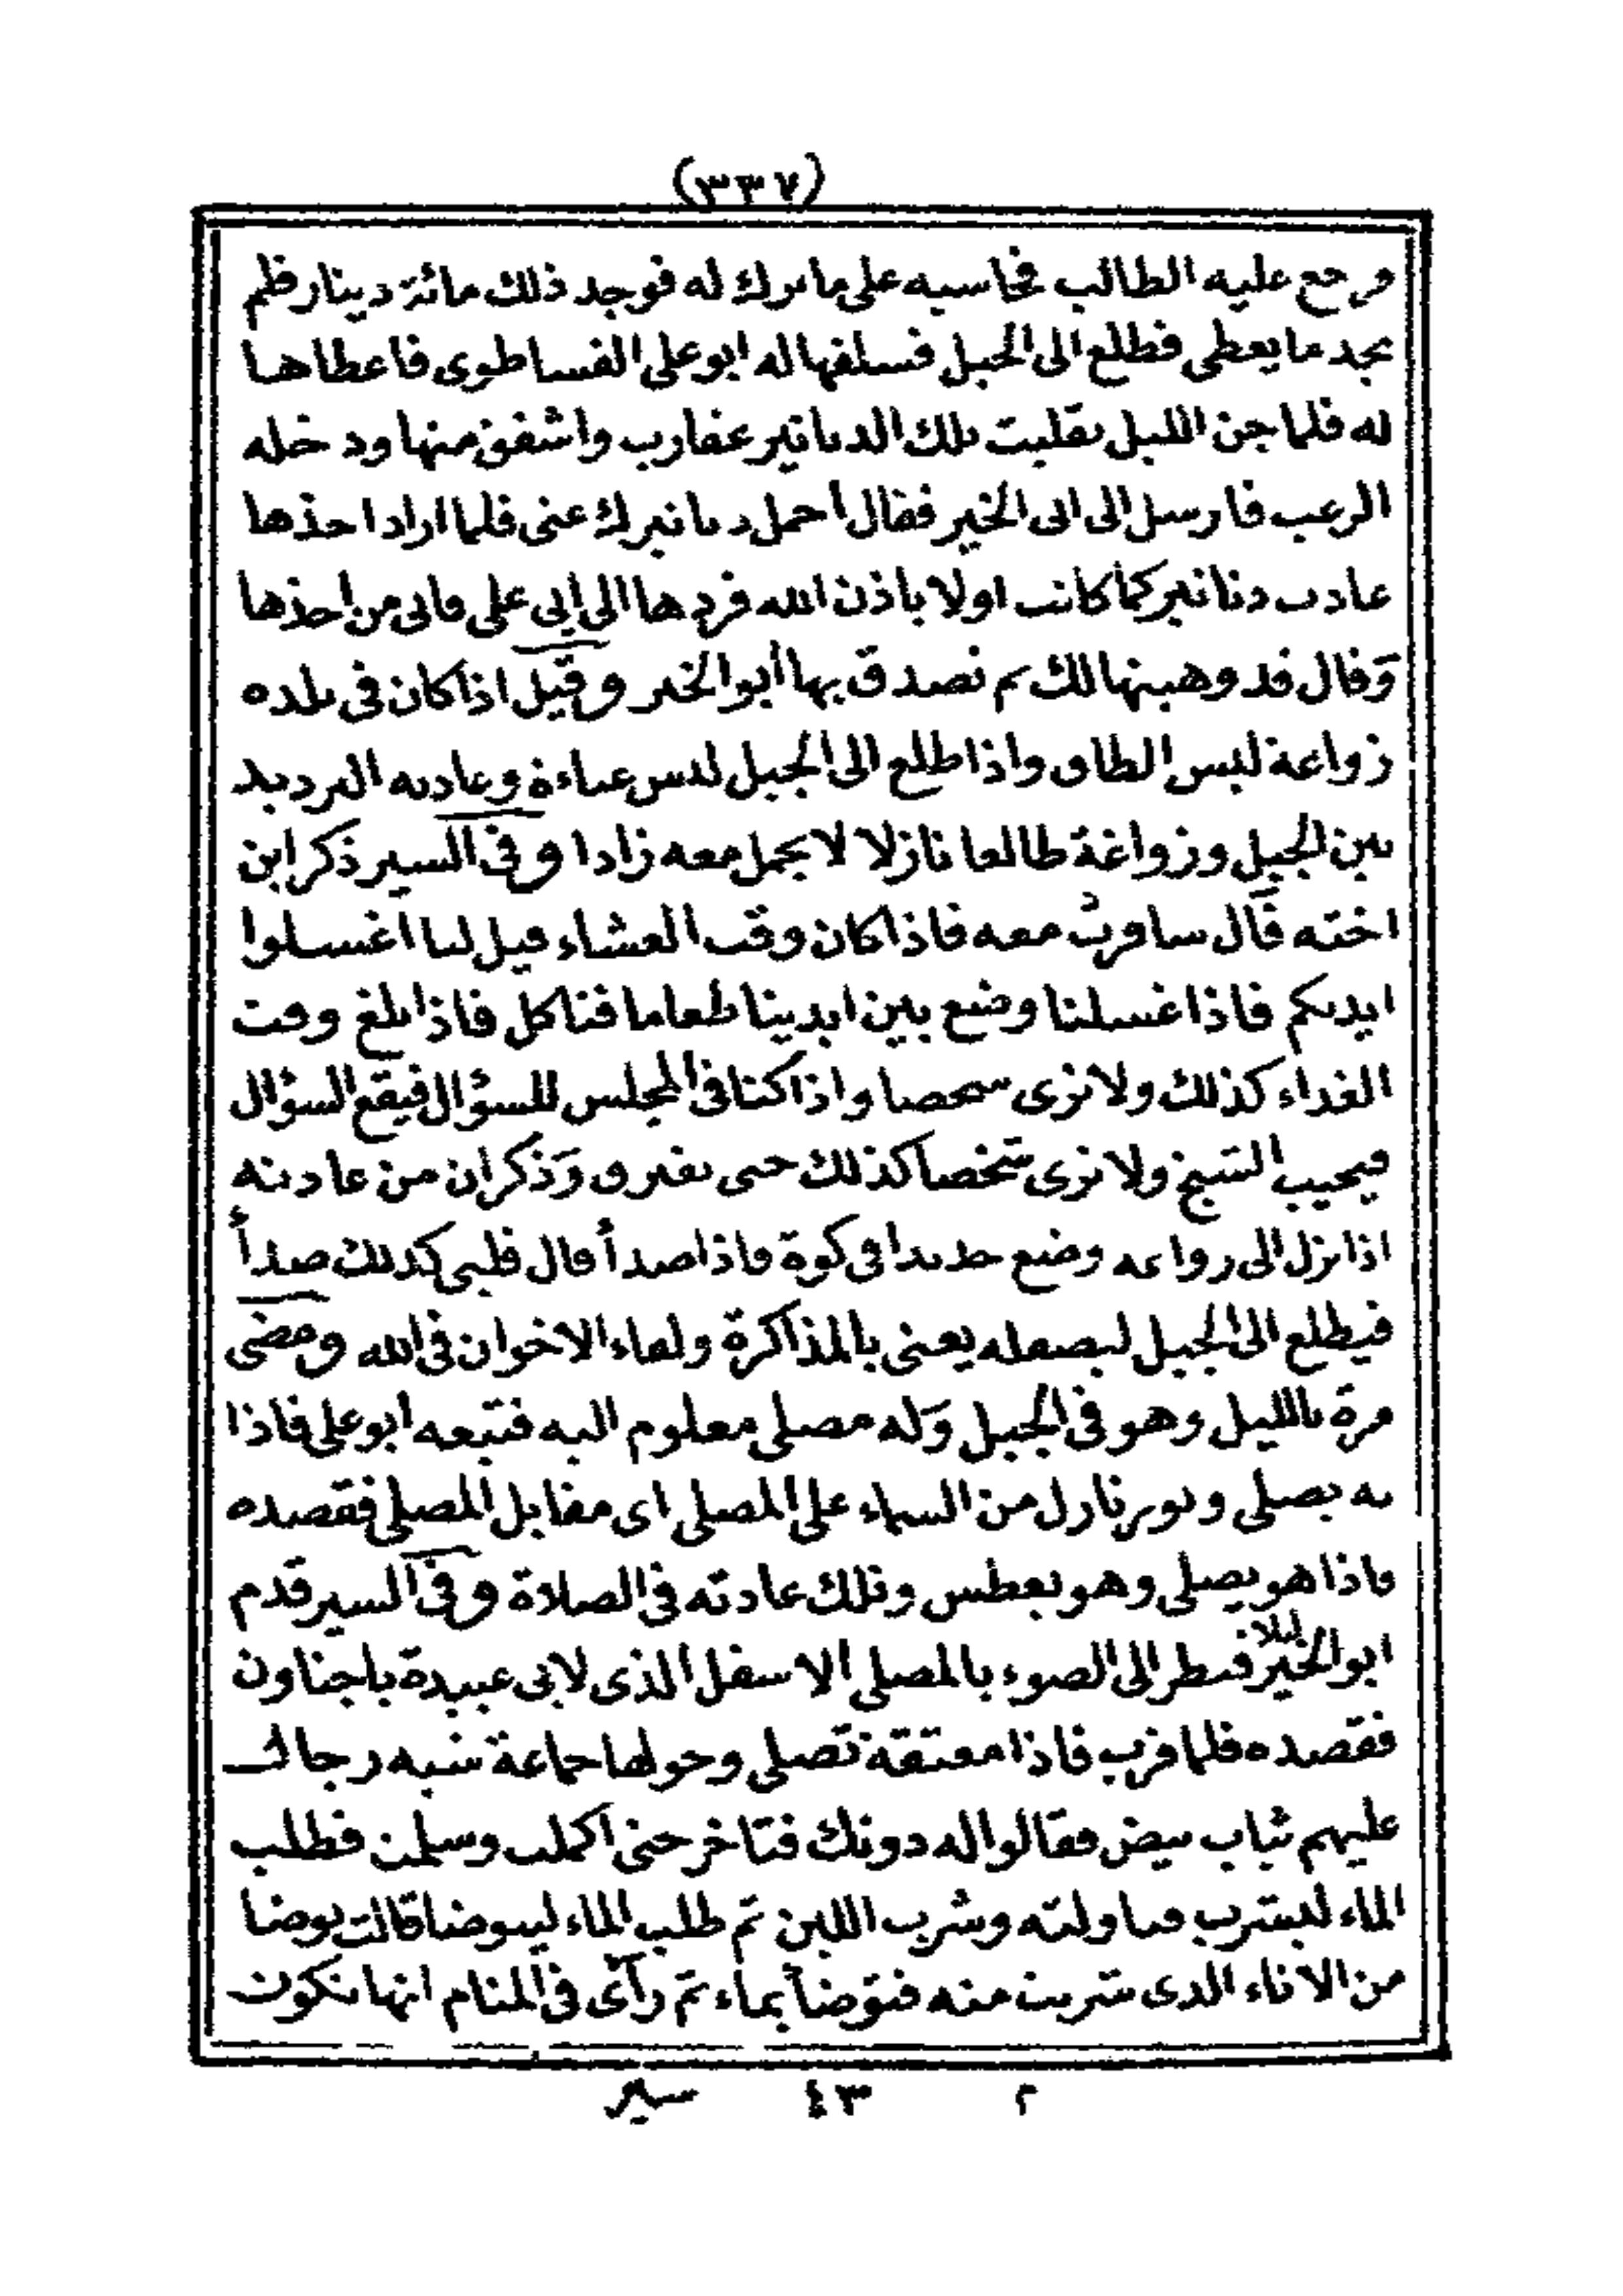 (٣٣٧)
ورجع عليه الطالب فحاسبه على ما ترك له فوجد ذلك مائة دينار فلم
يجد ما يعطى فطلع الى الجبل فسلفها له ابو على الفساطوى فاعطاها
له فلما جن الليل تقلبت تلك الدنانير عقارب واشفق منها ودخله
الرعب فارسل الى ابى الخير فقال احمل دنانيرك عنى فلما اراد اخذها
عادت دنانير كما كانت اولا باذن الله فردها الى ابى على فابى من اخذها
وقال قد وهبتها لك ثم تصدق بها ابو الخير وقيل اذا كان فى بلده
زواغة لبس الطاق واذا طلع الى الجبل لبس عباءة وعادته الترديد
بين الجبل وزواغة طالعا نازلا لا يحمل معه زادا وفى السير ذكر ابن
اخته قال سافرت معه فاذا كان وقت العشاء قيل لنا اغسلوا
ايديكم فاذا غسلنا وضع بين ايدينا طعاما فناكل فاذا بلغ وقت
الغداء كذلك ولا نرى شخصا واذا كنا فى المجلس للسؤال فيقع السؤال
فيجيب الشيخ ولا نرى شخصا كذلك حتى نفترق وذكر ان من عادته
اذا نزل الى زواغة وضع حديدا فى كوة فاذا صدأ قال قلبى كذلك صدأ
فيطلع الى الجبل ليصقله يعنى بالمذاكرة ولقاء الاخوان فى الله ومضى
مرة بالليل وهو فى الجبل وله مصلى معلوم اليه فتبعه ابو على فاذا
به يصلى ونور نازل من السماء على المصلى اى مقابل المصلى فقصده
فاذا هو يصلى وهو يعطس وتلك عادته فى الصلاة وفى السير قدم
ابو الخير ليلا فنظر الى الضوء بالمصلى الاسفل الذى لابى عبيدة باجناون
فقصده فلما قرب فاذا معتقة تصلى وحولها جماعة شبه رجال
عليهم ثياب بيض فقالوا له دونك فتاخر حتى اكملت وسلمن فطلب
الماء ليشرب فناولته وشرب اللبن ثم طلب الماء ليتوضا قالت توضا
من الاناء الذى شربت منه فتوضأ بماء ثم رآى فى المنام انها تكون
٢ ٤٣ سير